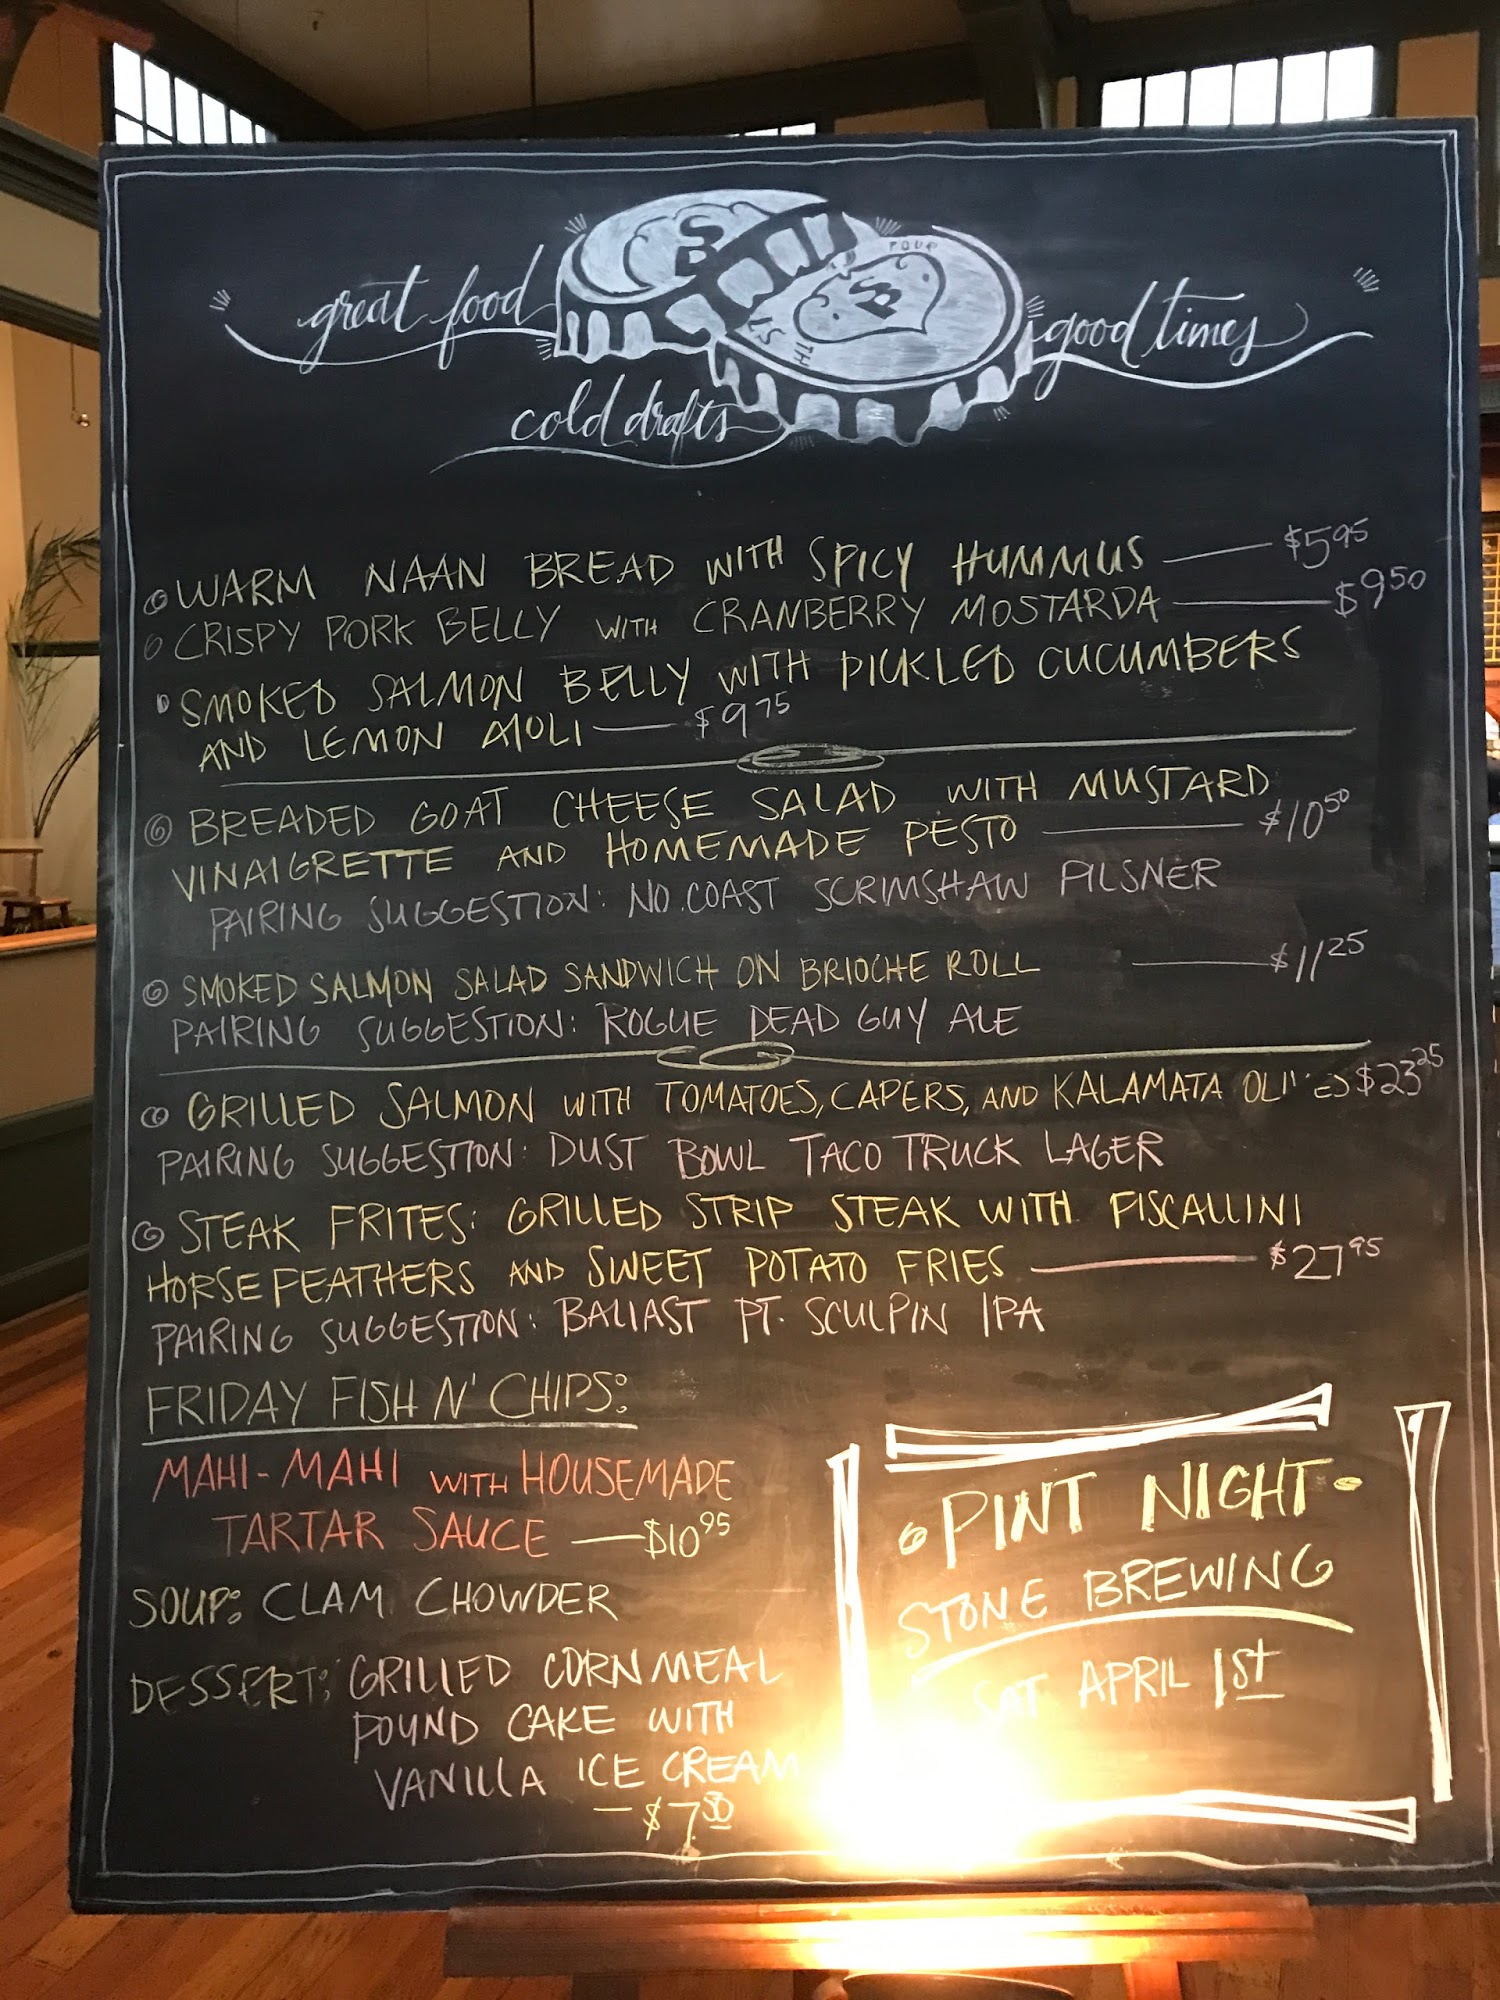 great food
good times
cold drafts
WARM NAAN BREAD WITH SPICY HUMMUS — $5.95
CRISPY PORK BELLY WITH CRANBERRY MOSTARDA — $9.50
SMOKED SALMON BELLY WITH PICKLED CUCUMBERS
AND LEMON AIOLI — $9.75
BREADED GOAT CHEESE SALAD WITH MUSTARD
VINAIGRETTE AND HOMEMADE PESTO — $10.50
PAIRING SUGGESTION: NO.COAST SCRIMSHAW PILSNER
SMOKED SALMON SALAD SANDWICH ON BRIOCHE ROLL — $11.25
PAIRING SUGGESTION: ROGUE DEAD GUY ALE
GRILLED SALMON WITH TOMATOES, CAPERS, AND KALAMATA OLIVES $23.25
PAIRING SUGGESTION: DUST BOWL TACO TRUCK LAGER
STEAK FRITES: GRILLED STRIP STEAK WITH FISCALLINI
HORSE FEATHERS AND SWEET POTATO FRIES — $27.95
PAIRING SUGGESTION: BALLAST PT. SCULPIN IPA
FRIDAY FISH N' CHIPS:
MAHI-MAHI WITH HOUSEMADE
TARTAR SAUCE — $10.95
SOUP: CLAM CHOWDER
DESSERT: GRILLED CORNMEAL
POUND CAKE WITH
VANILLA ICE CREAM
— $7.50
PINT NIGHT
STONE BREWING
SAT APRIL 1st